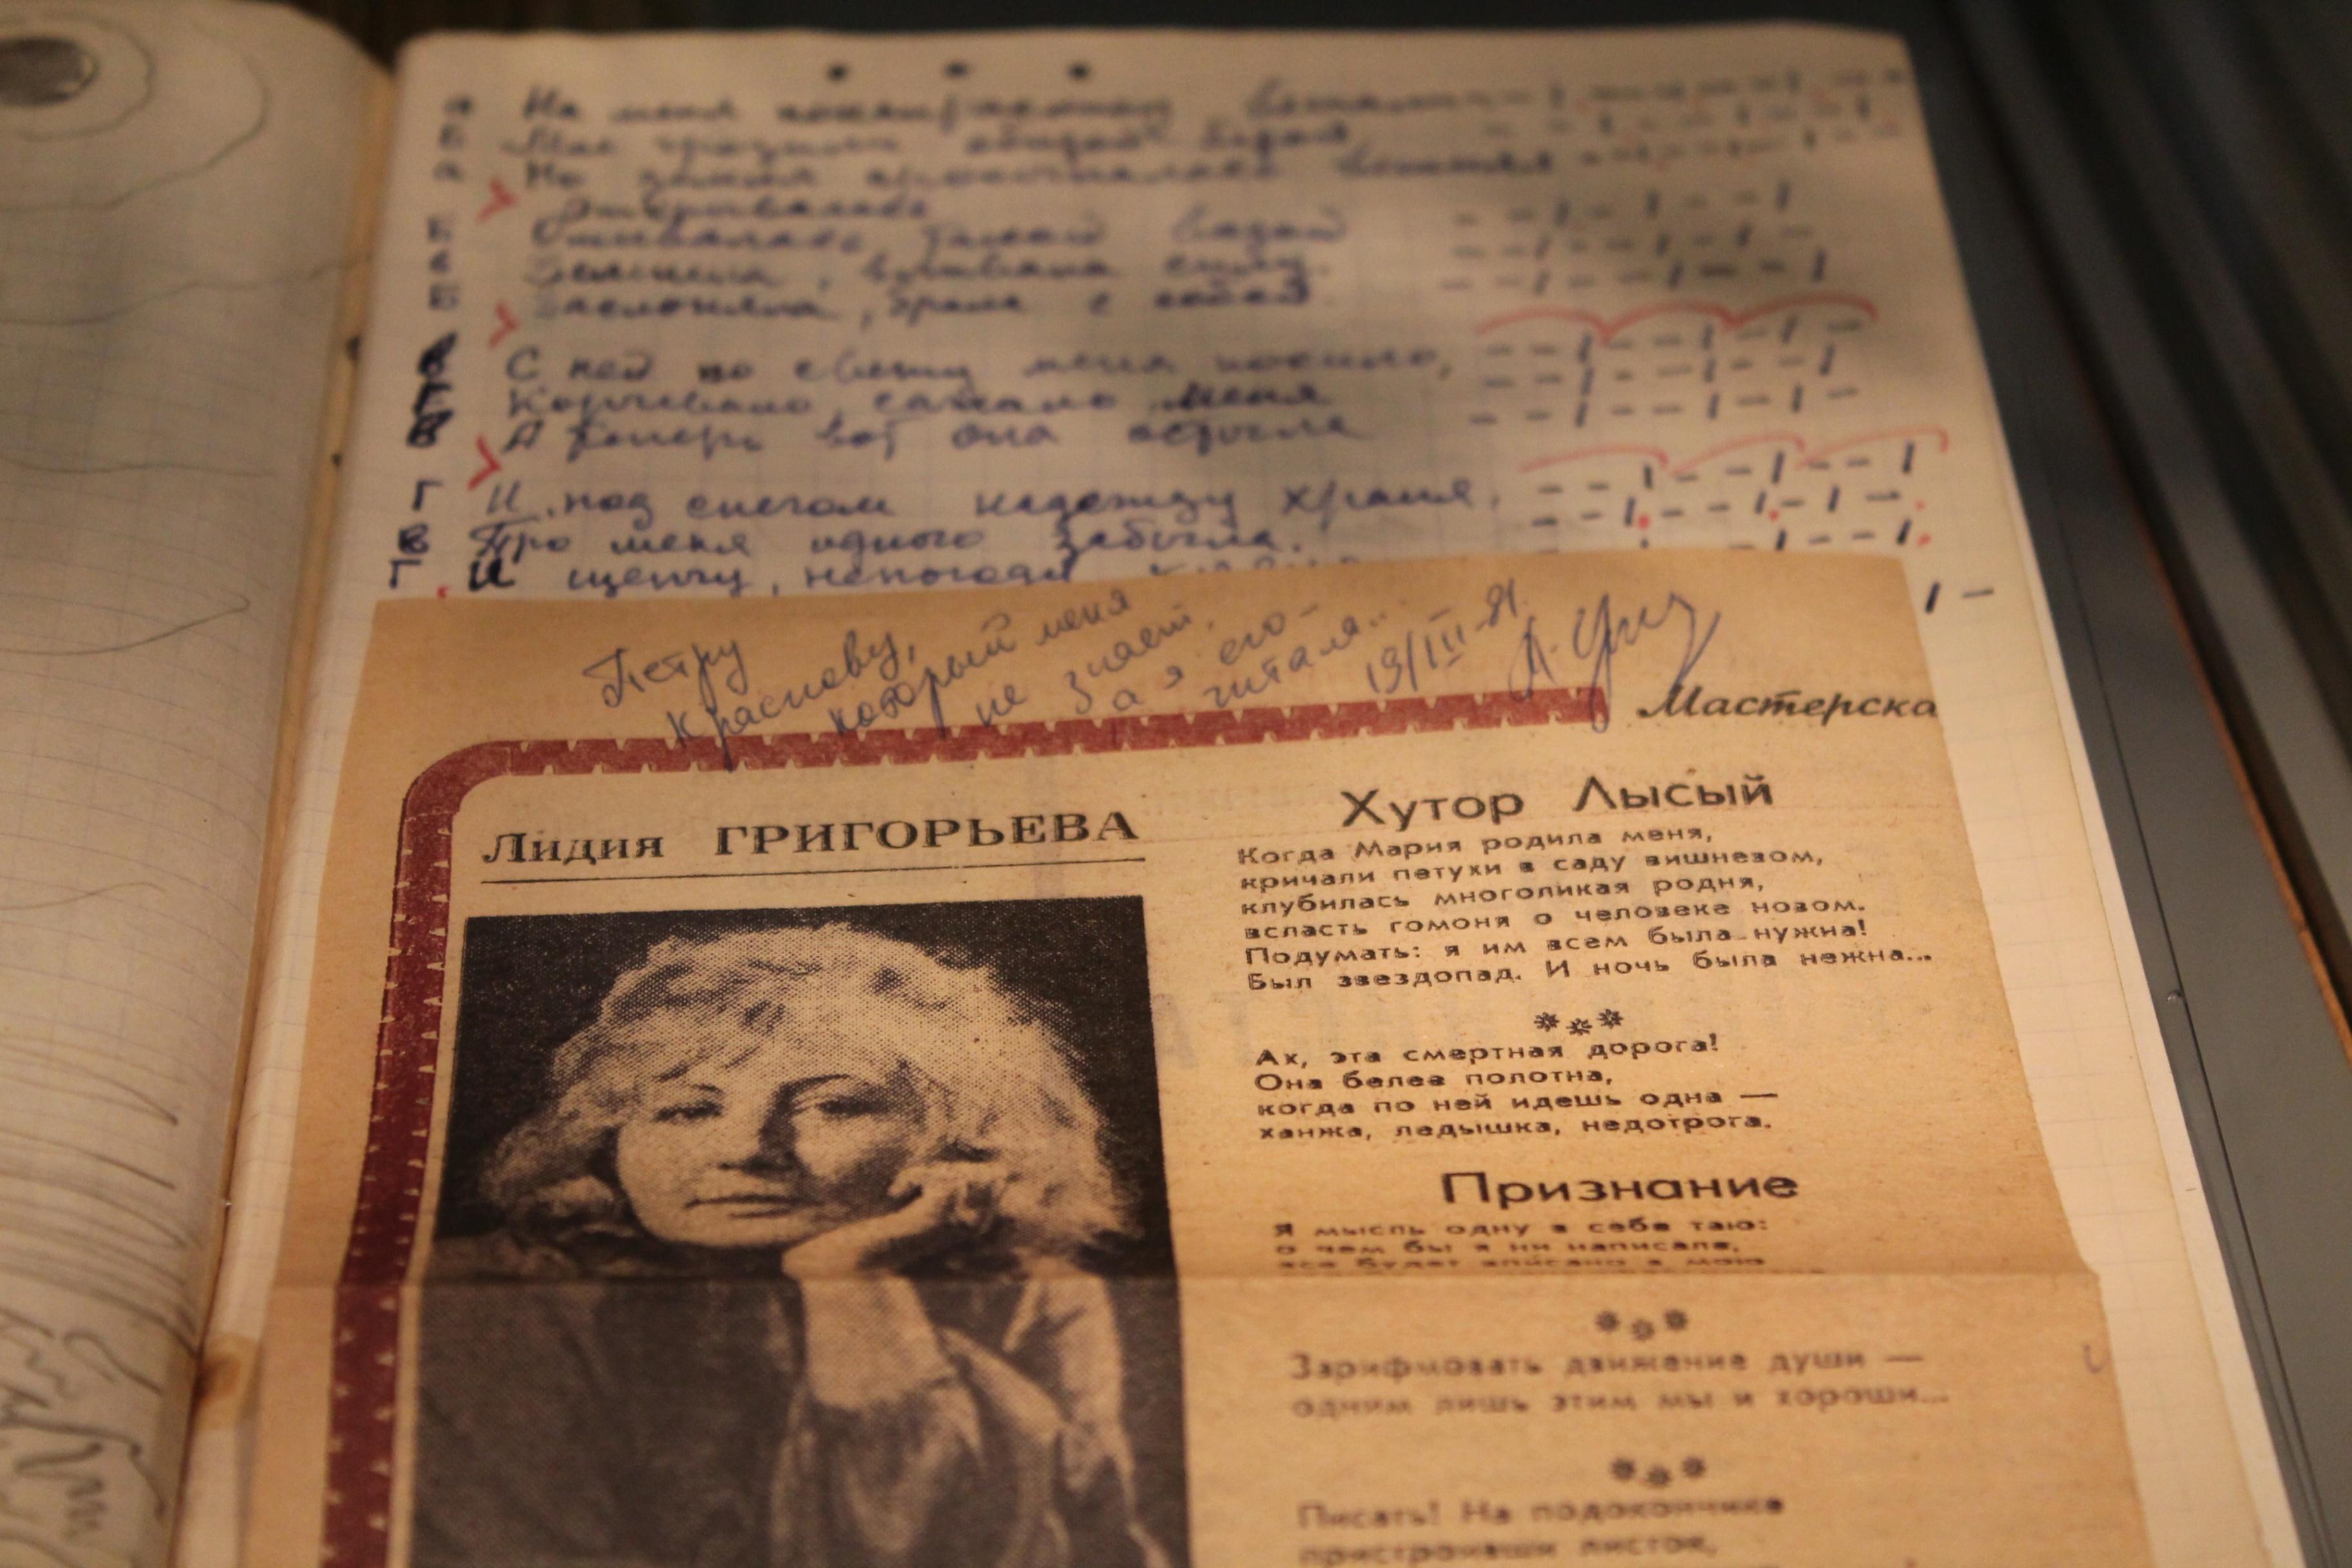 а На меня
Б
а Но земля
Открывалась
Б
в
Б Заслоняла, брала с собой
В С ней по свету меня носило,
Г Корчевало, сажало меня
В А теперь вот она остыла
Г И под снегом надежду храня,
В Про меня одного забыла.
Г И шепчу, непогоду
Петру
Краснову,
который меня
не знает,
а я его-
читала..
19/III-81.
Мастерска
Лидия ГРИГОРЬЕВА
Хутор Лысый
Когда Мария родила меня,
кричали петухи в саду вишневом,
клубилась многоликая родня,
всласть гомоня о человеке новом.
Подумать: я им всем была нужна!
Был звездопад. И ночь была нежна...
* * *
Ах, эта смертная дорога!
Она белее полотна,
когда по ней идешь одна —
ханжа, ледышка, недотрога.
Признание
Я мысль одну в себе таю:
о чем бы я ни написала,
все будет вписано в мою
* * *
Зарифмовать движение души —
одним лишь этим мы и хороши...
* * *
Писать! На подоконнике
пристроивши листок,